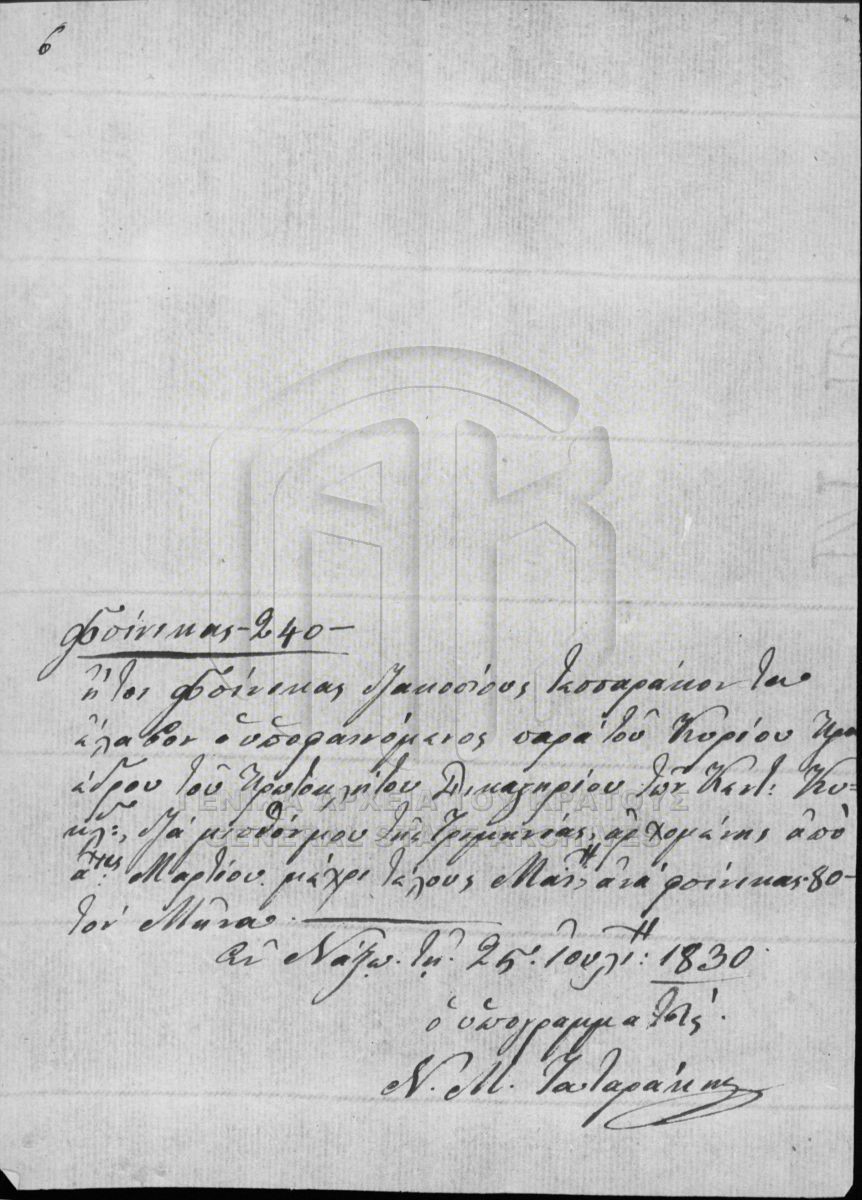 6
Φοίνικας - 240 -
ἤτοι φοίνικας διακοσίους τεσσαράκοντα
ἔλαβον ὁ ὑποφαινόμενος παρὰ τοῦ Κυρίου Προ
έδρου τοῦ Πρωτοκλήτου Δικαστηρίου τῶν Κεντ: Κυ-
κλ:, διὰ μισθόν μου τῆς τριμηνίας, ἀρχομένης ἀπὸ
α:ης Μαρτίου μέχρι τέλους Μαΐ:, ἀνὰ φοίνικας 80 -
τὸν Μῆνα.
ἐν Νάξῳ. τῇ. 25. Ἰουλί: 1830.
ὁ ὑπογραμματεύς.
Ν. Μ. Ταταράκης
ΓΕΝΙΚΑ ΑΡΧΕΙΑ ΤΟΥ ΚΡΑΤΟΥΣ